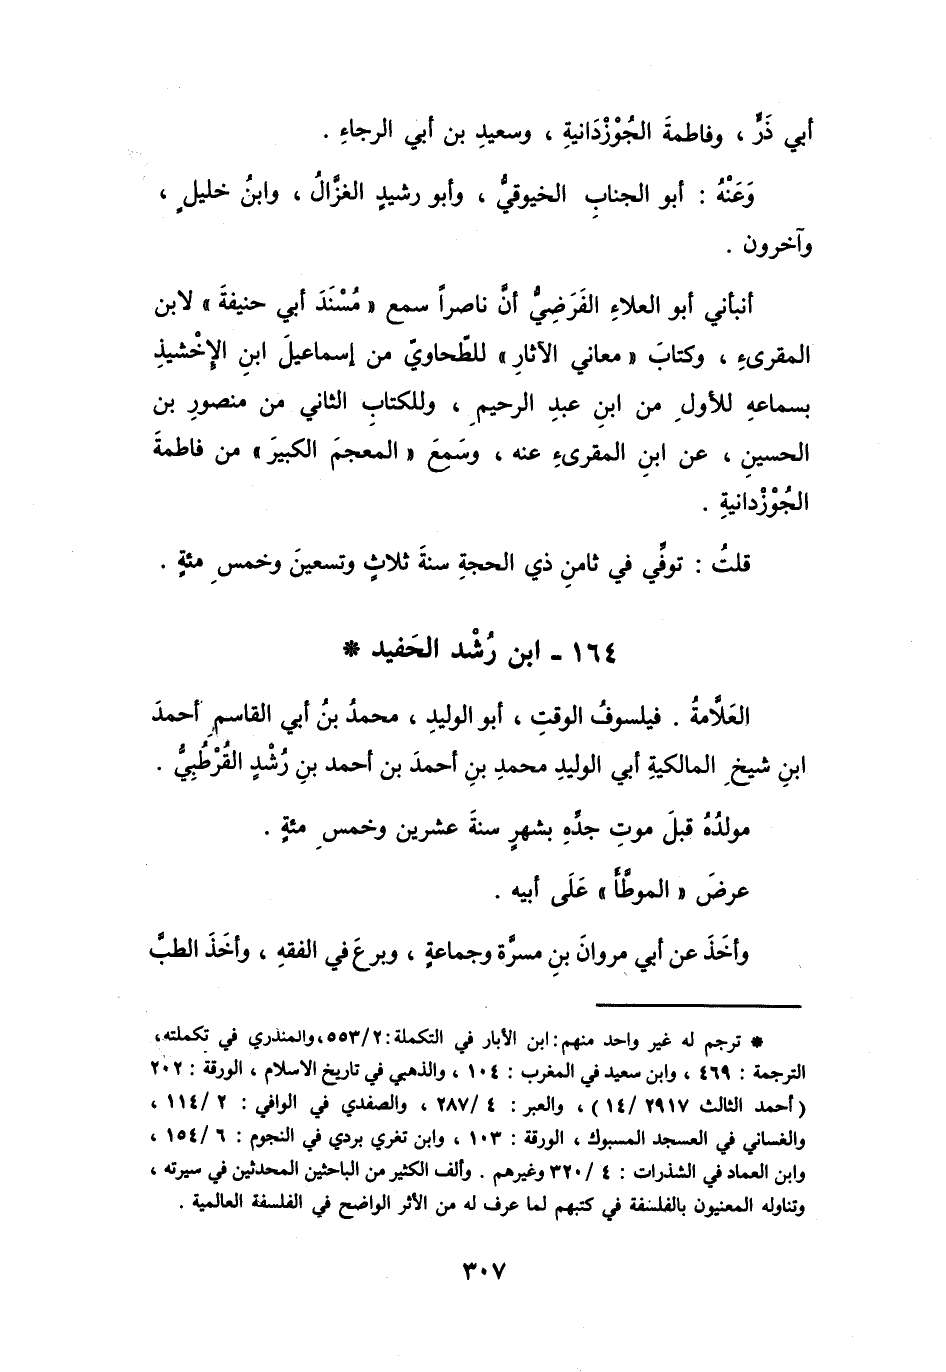 أبي ذَرٍّ ، وفاطمةَ الجُوْزْدَانيةِ ، وسعيدِ بن أبي الرجاءِ .
وَعَنْهُ : أبو الجنابِ الخيوقيُّ ، وأبو رشيدٍ الغزَّالُ ، وابنُ خليلٍ ،
وآخرون .
أنبأني أبو العلاءِ الفَرَضِيُّ أنَّ ناصراً سمع « مُسْنَدَ أبي حنيفةَ » لابن
المقرىءِ ، وكتابَ « معاني الآثارِ » للطّحاويّ من إسماعيلَ ابنِ الإِخْشيذِ
بسماعهِ للأولِ من ابنِ عبدِ الرحيمِ ، وللكتابِ الثاني من منصورِ بن
الحسينِ ، عن ابنِ المقرىءِ عنه ، وسَمِعَ « المعجمَ الكبيرَ » من فاطمةَ
الجُوْزْدانيةِ .
قلتُ : توفِّي في ثامنِ ذي الحجةِ سنةَ ثلاثٍ وتسعينَ وخمسِ مئةٍ .
١٦٤ - ابن رُشْد الحَفيد *
العَلَّامةُ . فيلسوفُ الوقتِ ، أبو الوليدِ ، محمدُ بنُ أبي القاسمِ أحمدَ
ابنِ شيخِ المالكيةِ أبي الوليدِ محمدِ بنِ أحمدَ بن أحمد بنِ رُشْدٍ القُرْطُبِيُّ .
مولدُهُ قبلَ موتِ جدِّهِ بشهرٍ سنةَ عشرين وخمسِ مئةٍ .
عرضَ « الموطَّأَ » عَلَى أبيه .
وأخَذَ عن أبي مروانَ بنِ مسرَّة وجماعةٍ ، وبرعَ في الفقهِ ، وأخَذَ الطبَّ
* ترجم له غير واحد منهم : ابن الأبار في التكملة : ٢/ ٥٥٣ ، والمنذري في تكملته ،
الترجمة : ٤٦٩ ، وابن سعيد في المغرب : ١٠٤ ، والذهبي في تاريخ الاسلام ، الورقة : ٢٠٢
( أحمد الثالث ٢٩١٧ /١٤ ) ، والعبر : ٤ /٢٨٧ ، والصفدي في الوافي : ٢ /١١٤ ،
والغساني في العسجد المسبوك ، الورقة : ١٠٣ ، وابن تغري بردي في النجوم : ٦ /١٥٤ ،
وابن العماد في الشذرات : ٤ /٣٢٠ وغيرهم . وألف الكثير من الباحثين المحدثين في سيرته ،
وتناوله المعنيون بالفلسفة في كتبهم لما عرف له من الأثر الواضح في الفلسفة العالمية .
٣٠٧